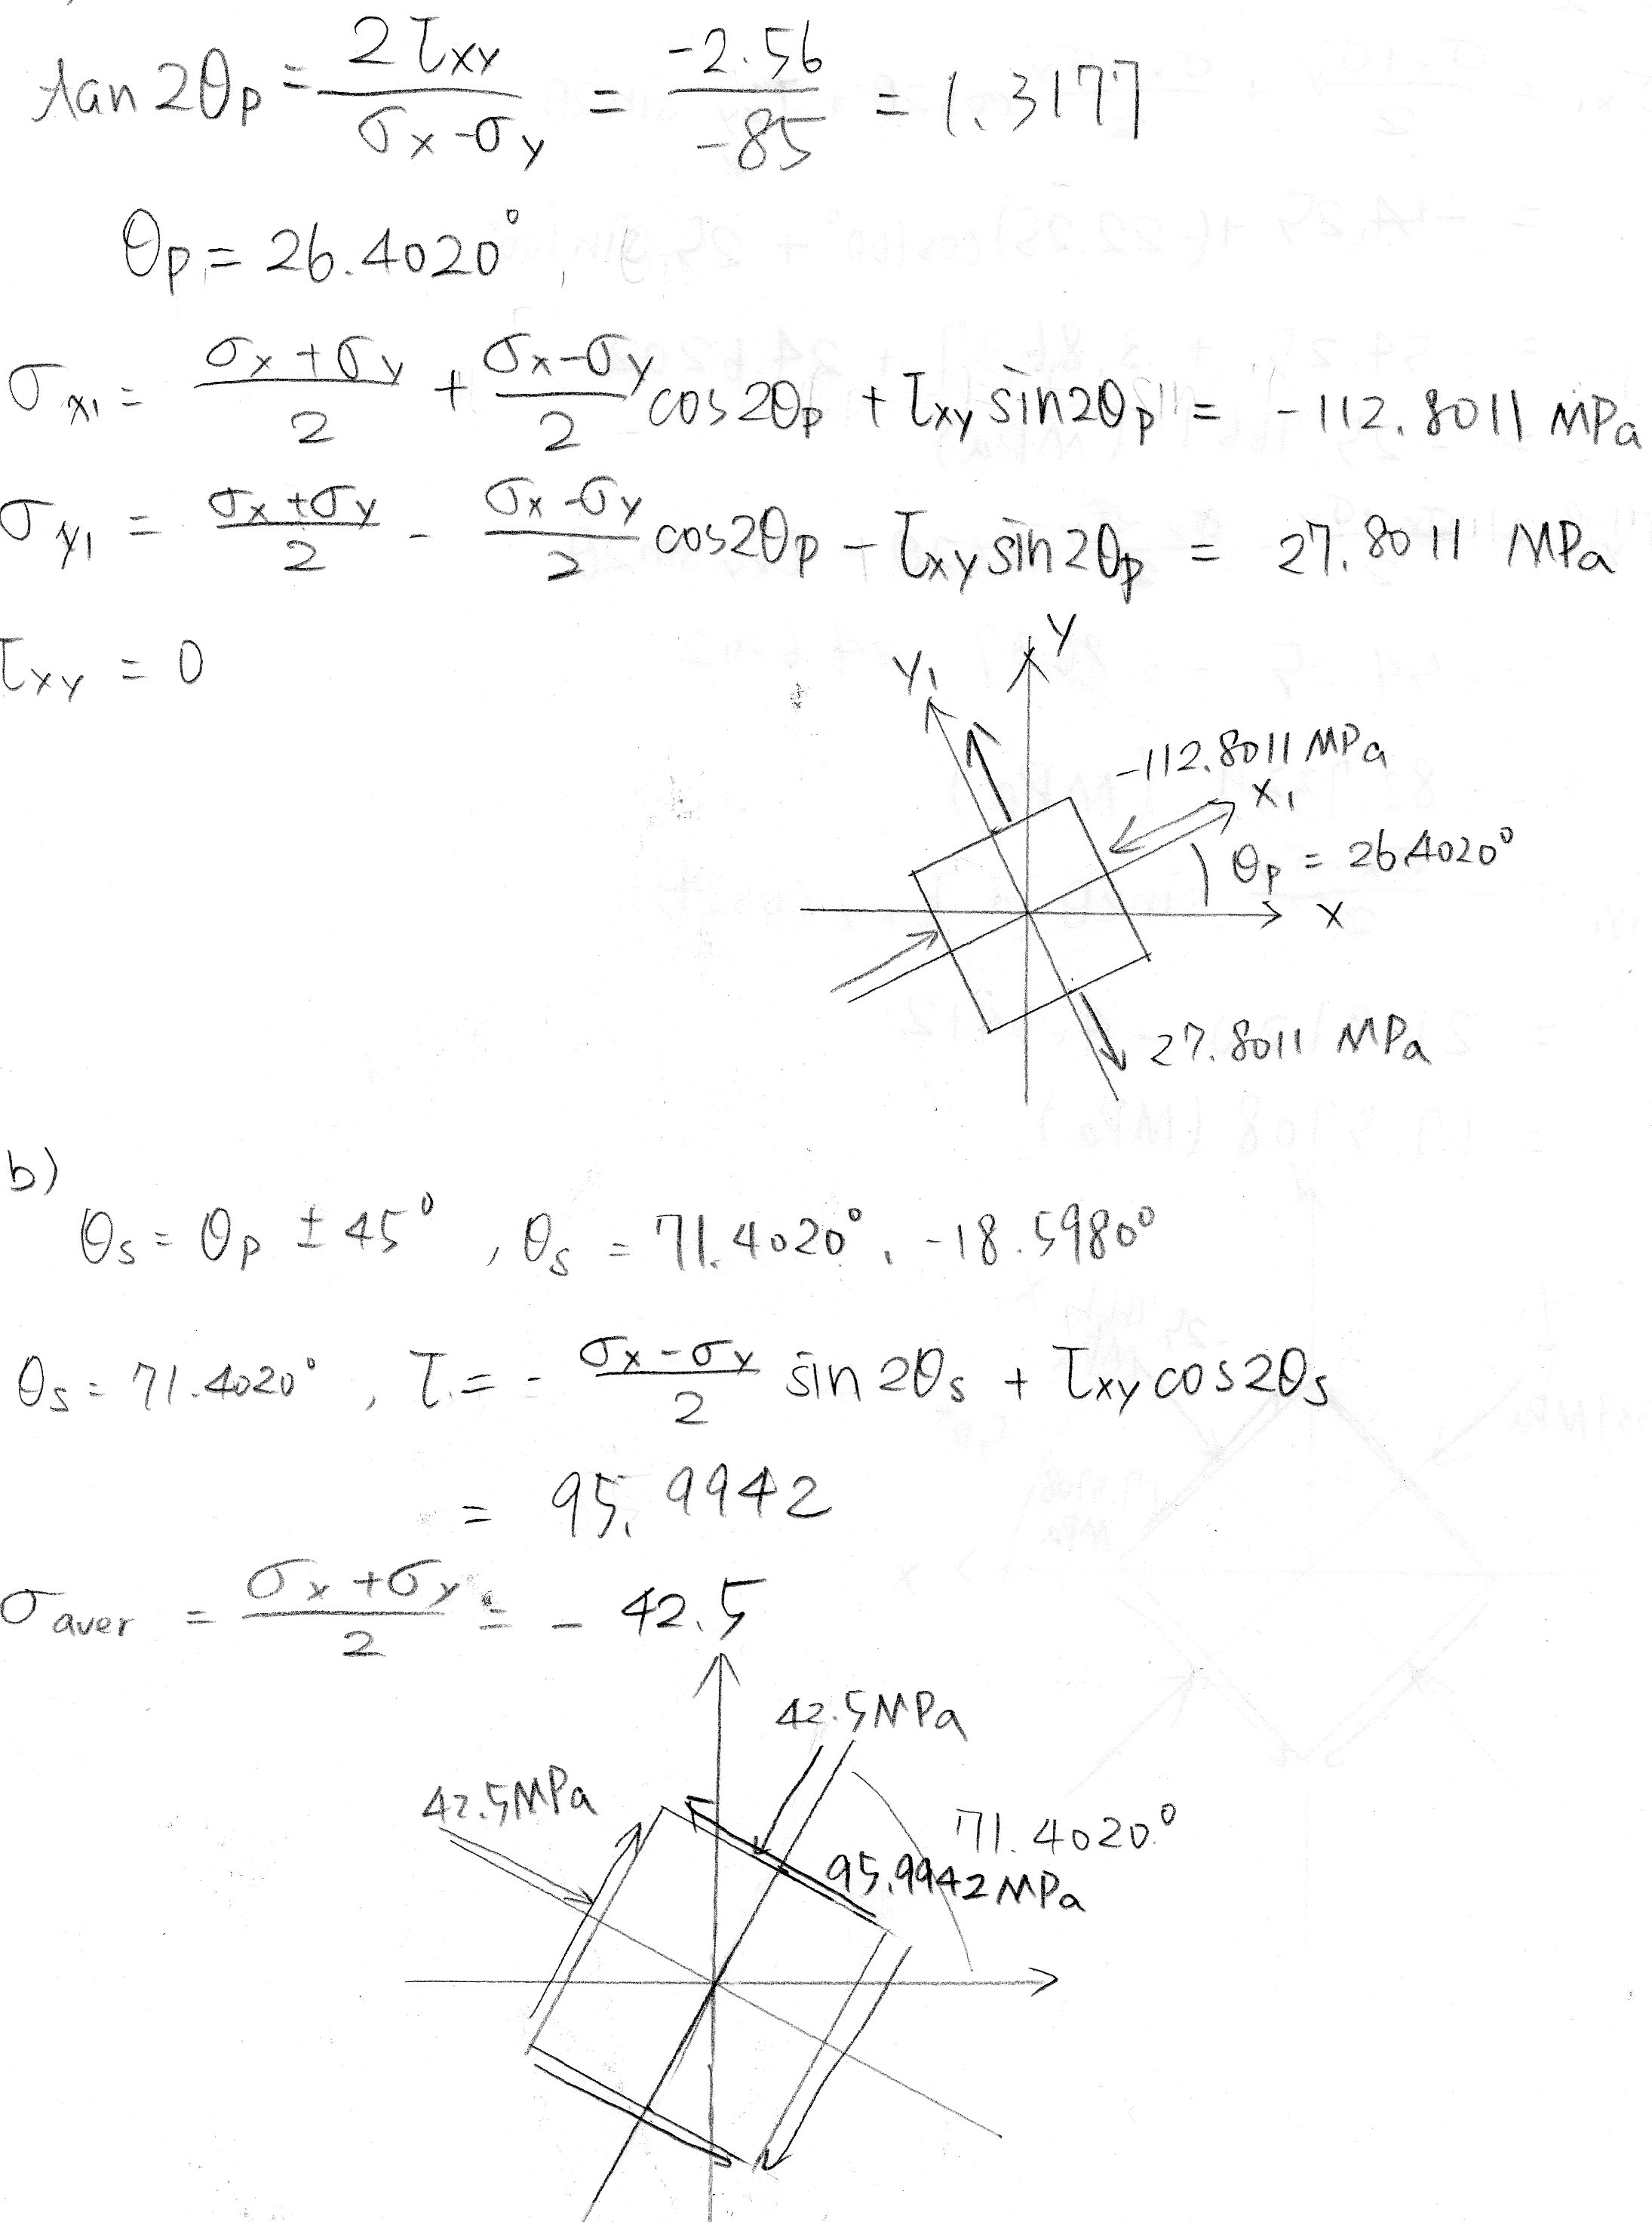 tan 2θp = 2τxy / (σx - σy) = -2.56 / -85 = 1.3177
θp = 26.4020°
σx1 = (σx + σy) / 2 + (σx - σy) / 2 cos2θp + τxy sin2θp = -112.8011 MPa
σy1 = (σx + σy) / 2 - (σx - σy) / 2 cos2θp - τxy sin2θp = 27.8011 MPa
τxy = 0
y
y1
-112.8011 MPa
x1
θp = 26.4020°
x
27.8011 MPa
b)
θs = θp ± 45°, θs = 71.4020°, -18.5980°
θs = 71.4020°, τ = - (σx - σy) / 2 sin 2θs + τxy cos2θs
= 95.9942
σaver = (σx + σy) / 2 = - 42.5
42.5MPa
42.5MPa
71.4020°
95.9942MPa